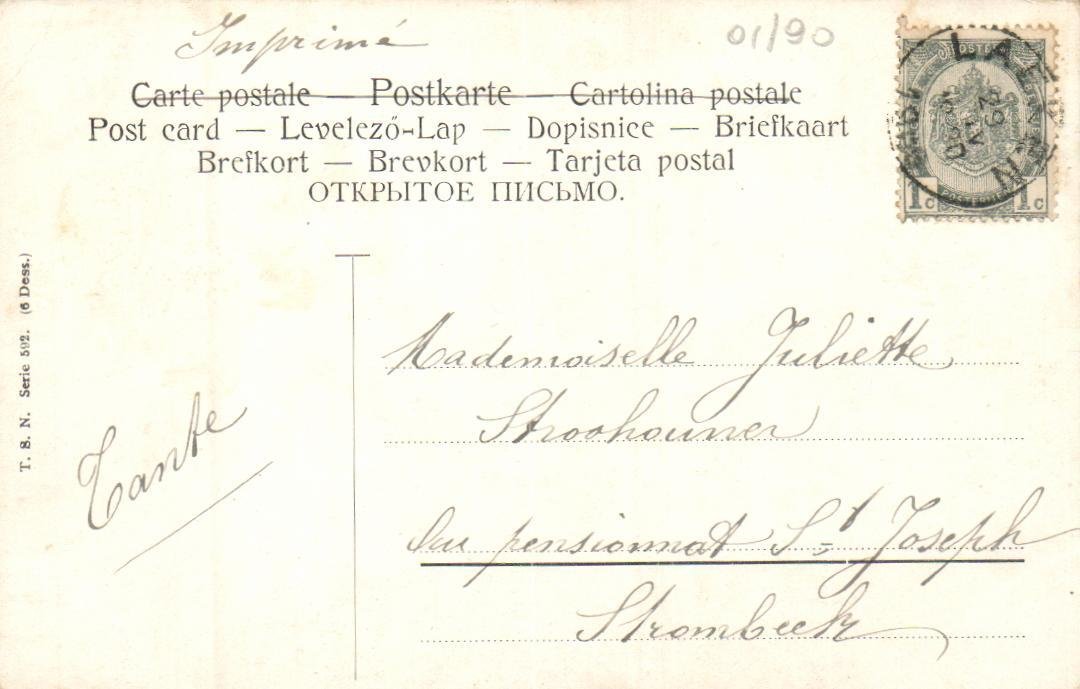 Imprimé
01/90
Carte postale — Postkarte — Cartolina postale
Post card — Levelező-Lap — Dopisnice — Briefkaart
Brefkort — Brevkort — Tarjeta postal
ОТКРЫТОЕ ПИСЬМО.
1c 1c
T. S. N. Serie 592. (6 Dess.)
Mademoiselle Juliette
Stroohouner
Tante
au pensionnat St Joseph
Strombeek